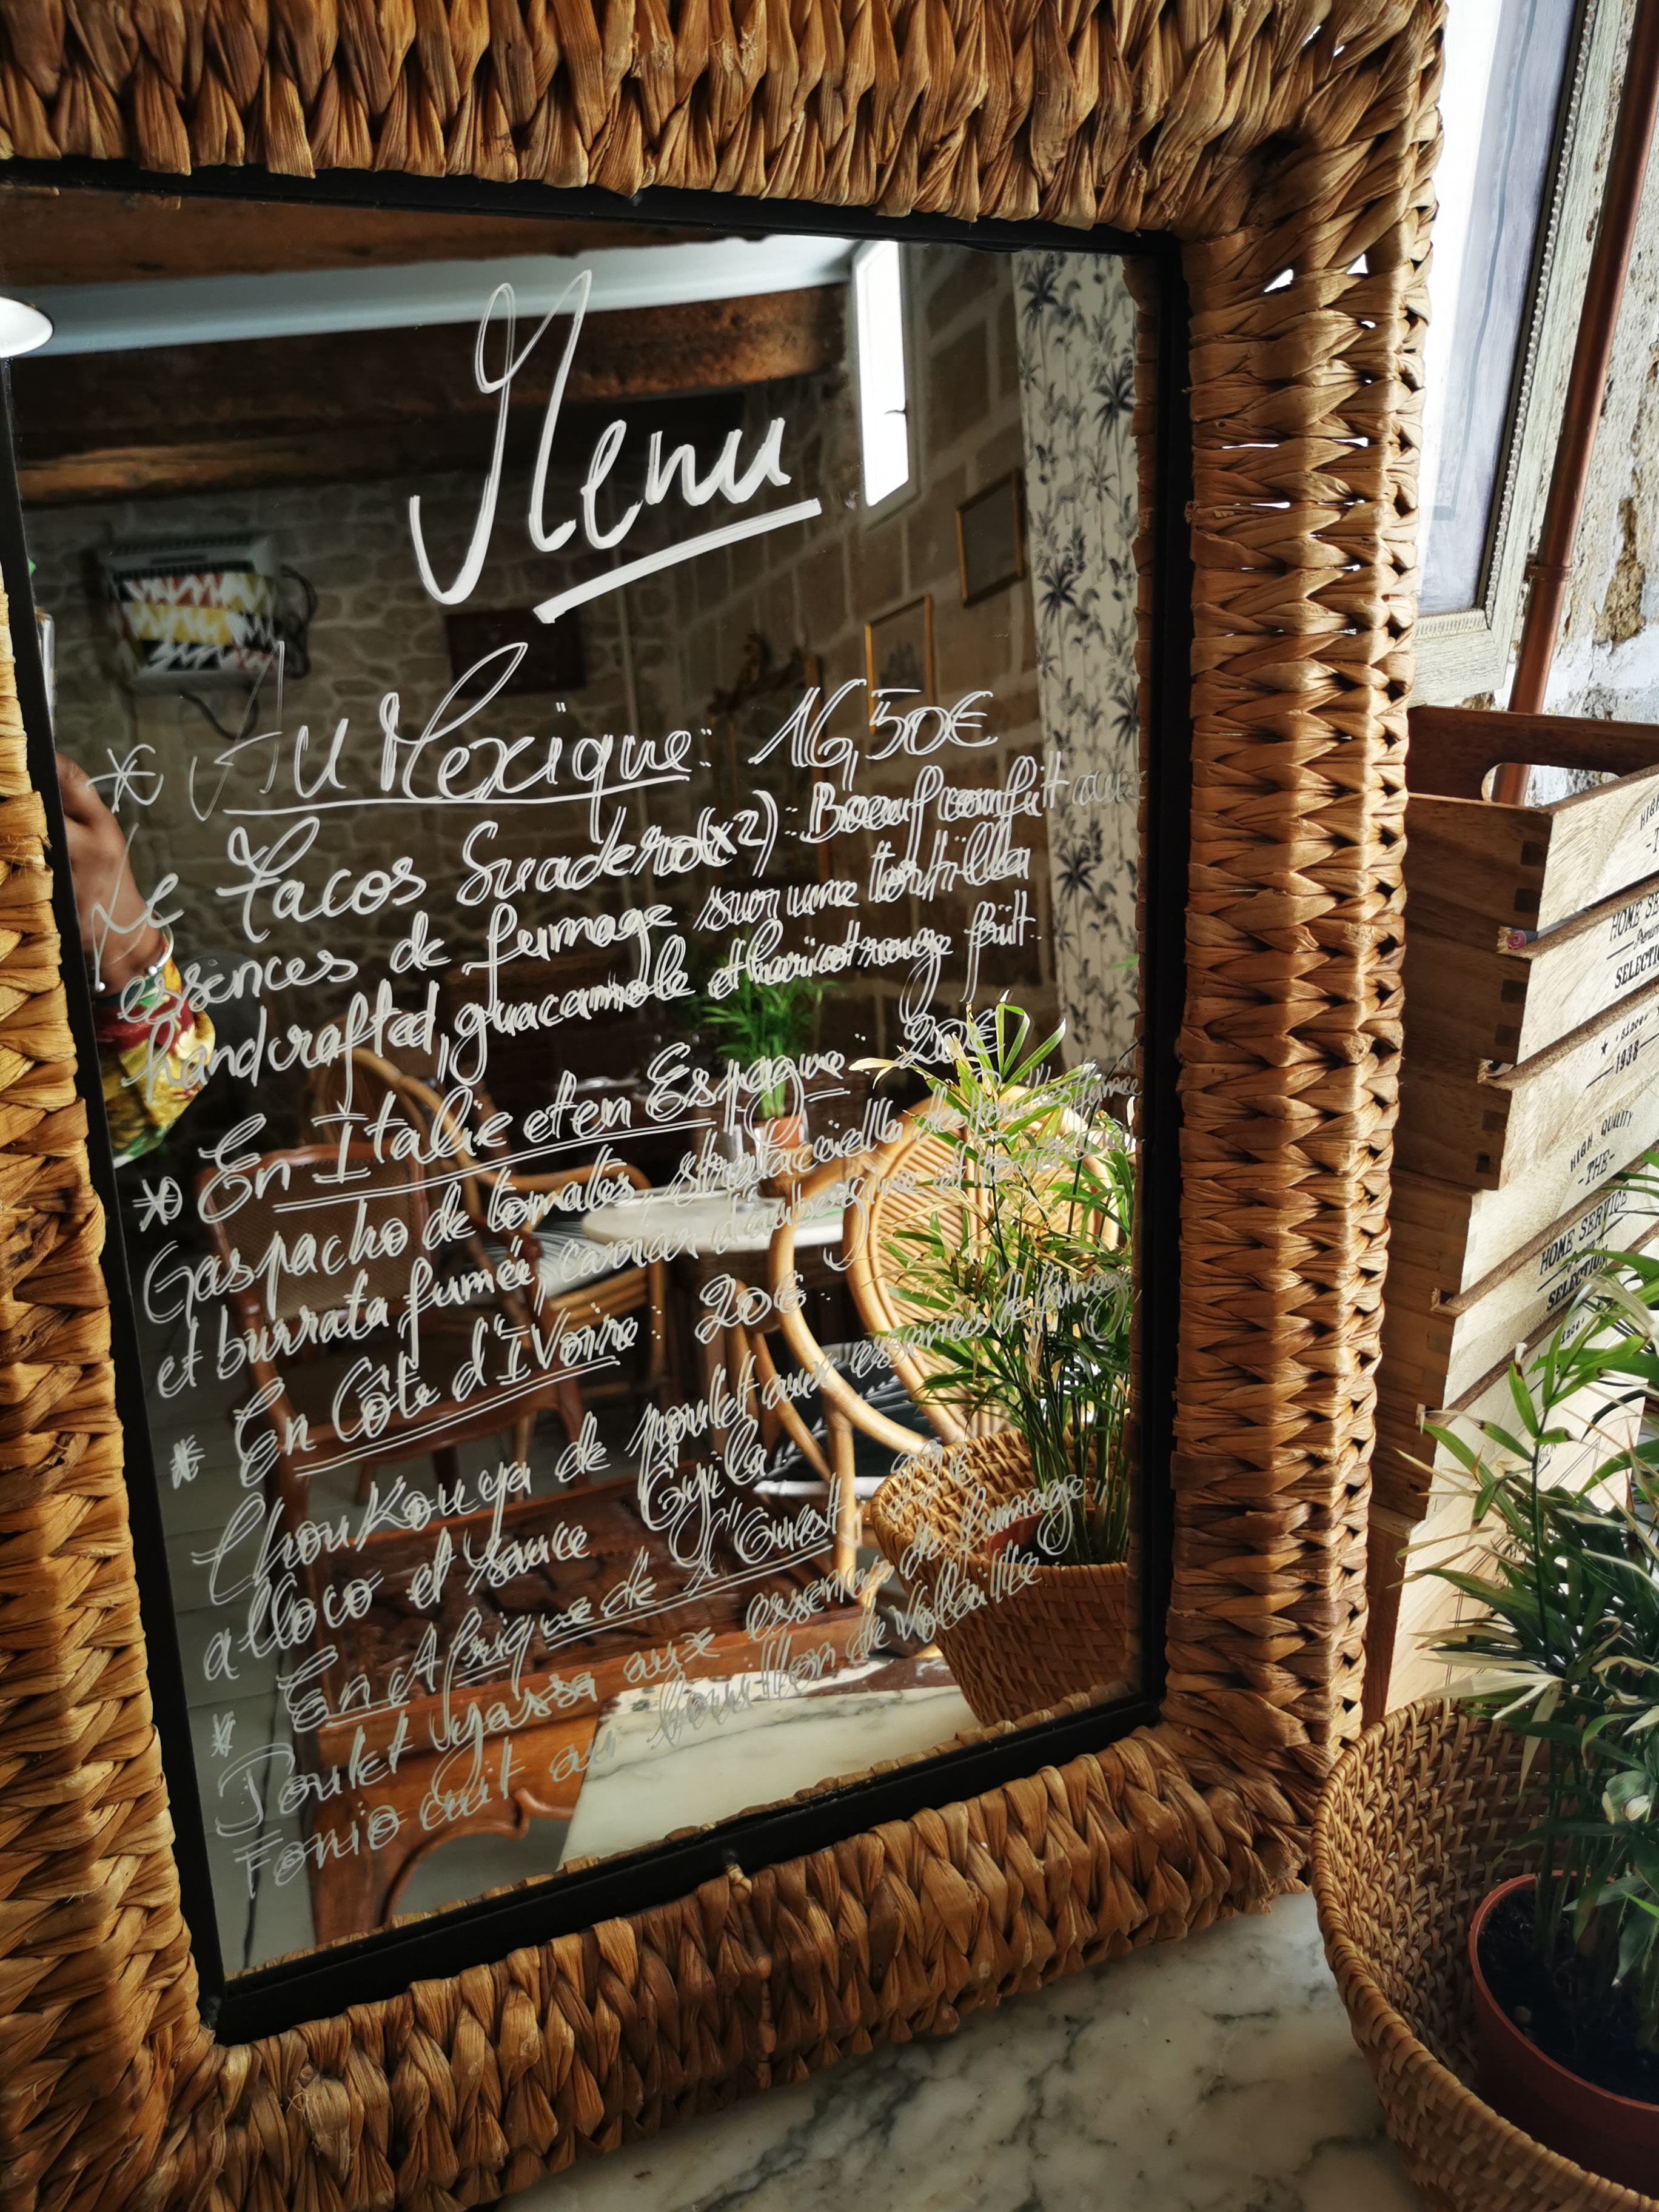 Menu
* Au Mexique : 16,50€
Le Tacos Suadero (x2) : Boeuf confit aux
essences de fumage sur une tortilla
handcrafted, guacamole et haricot rouge frit.
* En Italie et en Espagne : 20€
Gaspacho de tomates, stracciatella
et burrata fumée, caviar d'aubergine et
* En Côte d'IVoire : 20€
Choukouya de poulet aux essences de fumage,
alloco et sauce
* En Afrique de l'Ouest
Poulet yassa aux essences de fumage,
Fonio cuit au bouillon de Volaille
HOME SE
SELECTIO
1938
HIGH QUALITY
-THE-
HOME SERVICE
SELECTION